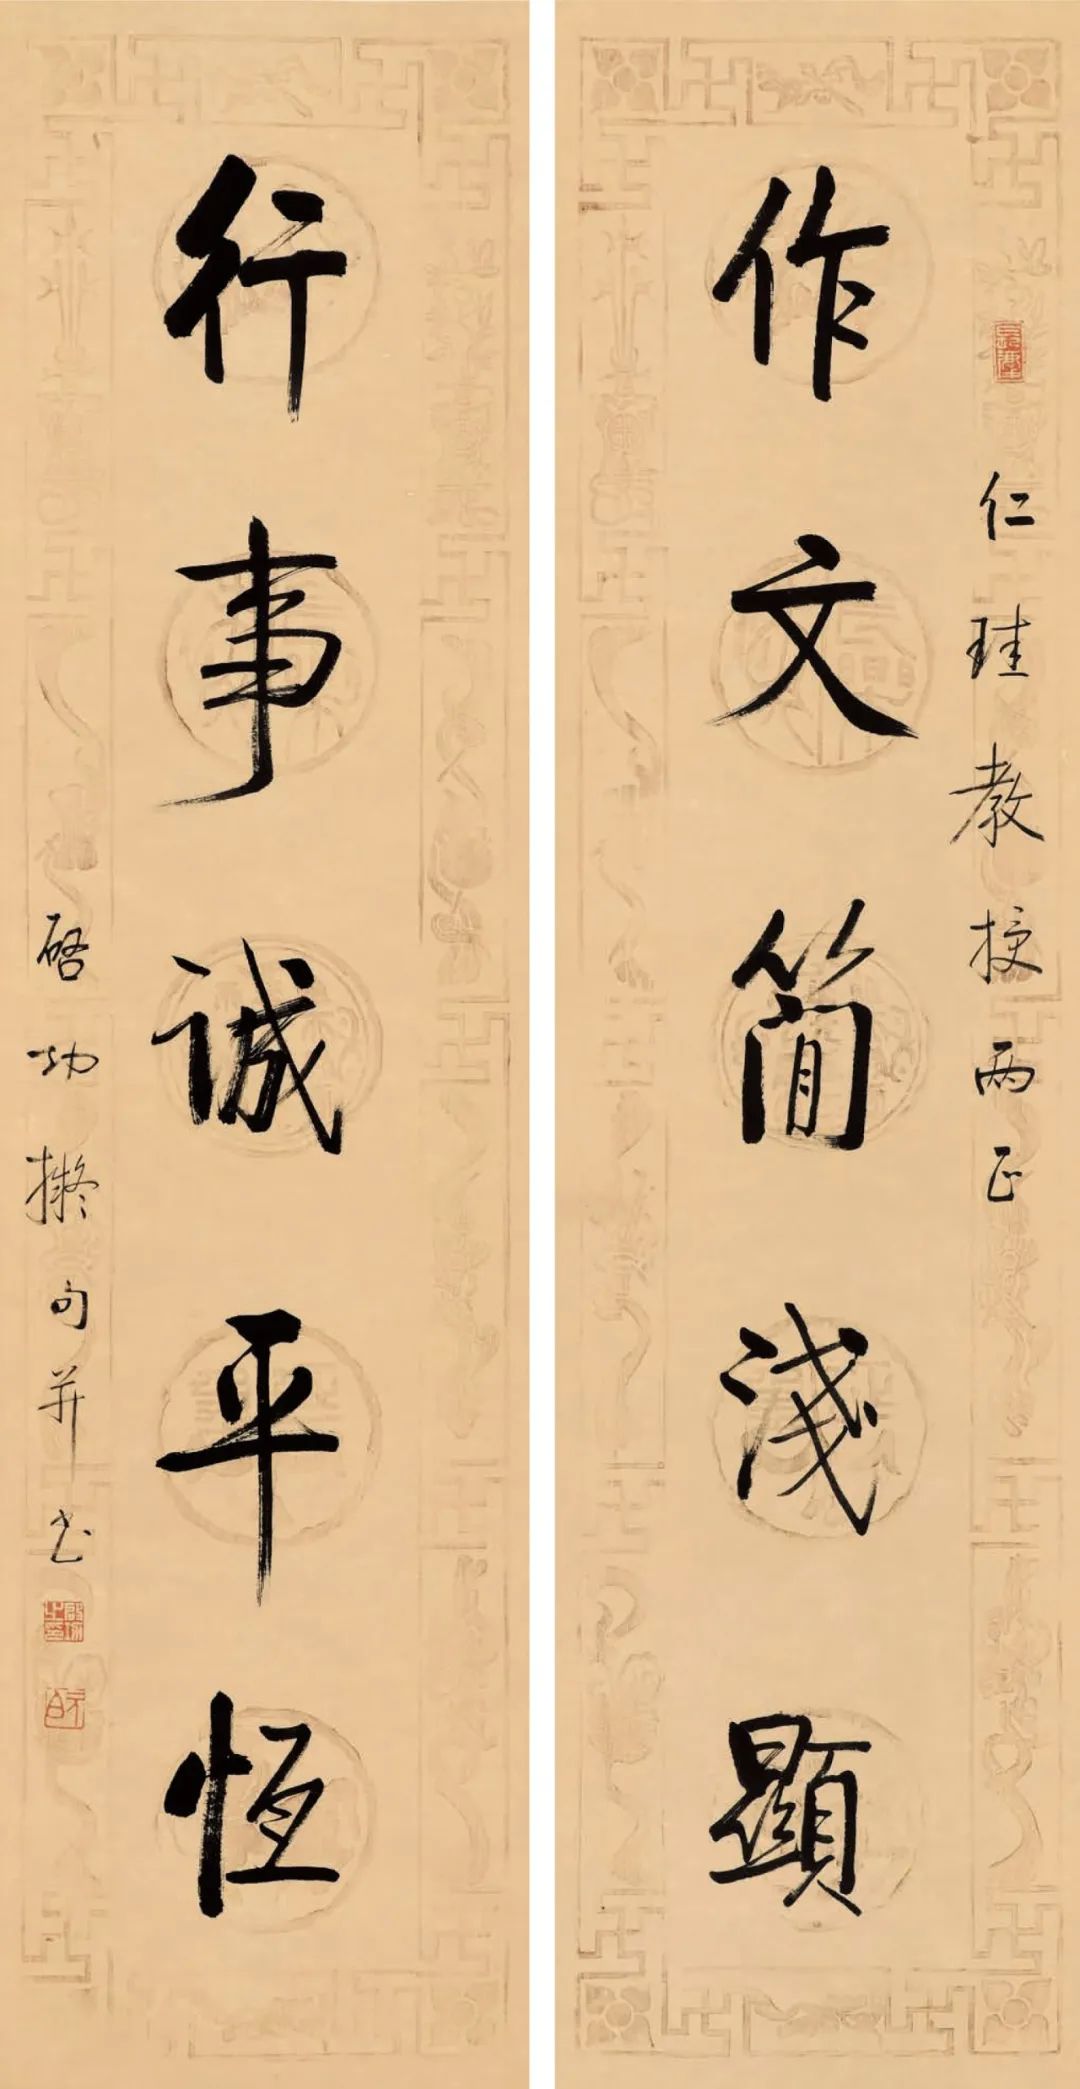 仁珪教授两正
作文简浅显
行事诚平恒
启功拟句并书